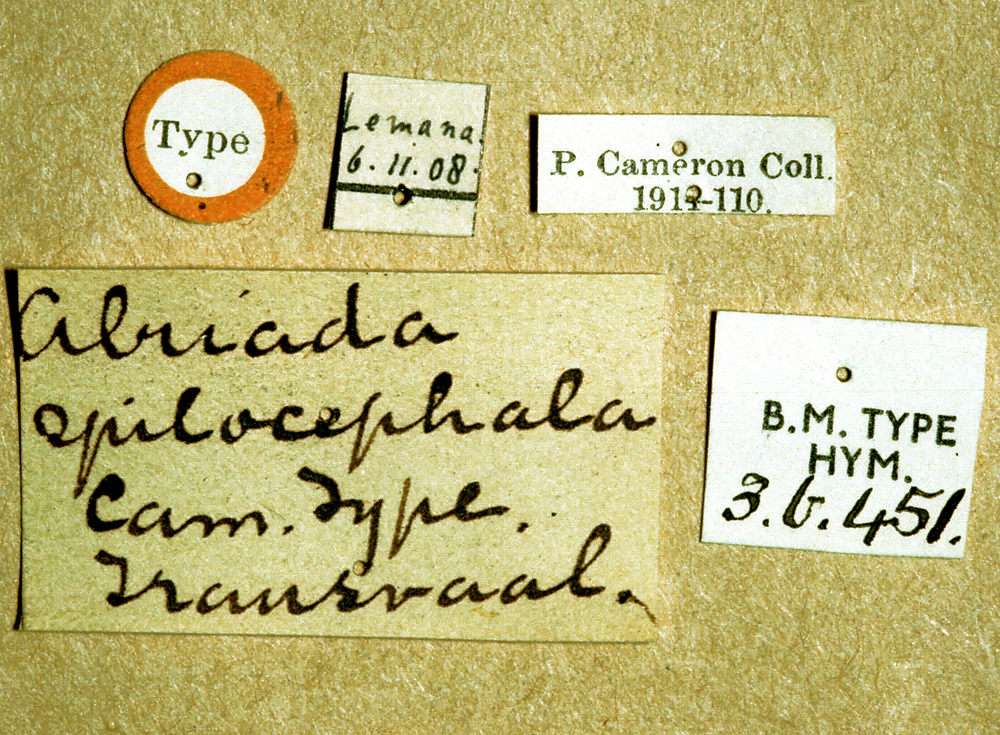 Type
Lemana.
6.11.08.
P. Cameron Coll.
1914-110.
Abriada
spilocephala
Cam. Type.
Transvaal.
B.M. TYPE
HYM.
3.b.451.